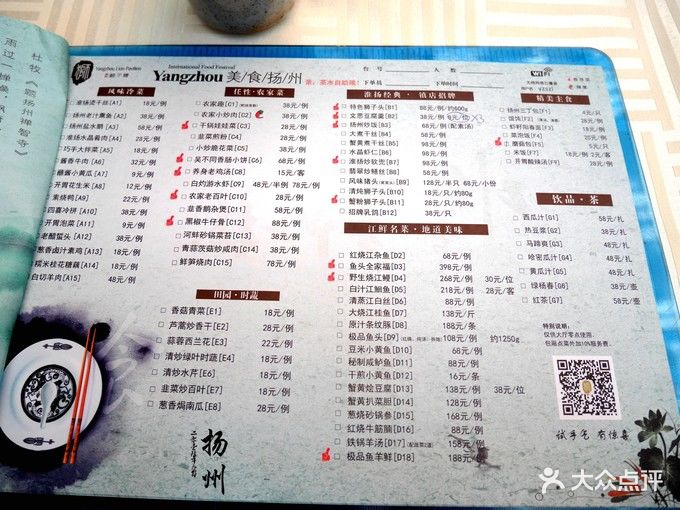 杜牧《题扬州禅智寺》
雨过一蝉噪
Yangzhou Lion Pavilion
International Food Festival
Yangzhou 美/食/扬/州
亲，茶水自助哦！
台号 人数
下单员 下单时间
WiFi
风味冷菜
淮扬烫干丝[A1] 18元/例
扬州老汁熏鱼[A2] 38元/例
扬州盐水鹅[A3] 58元/例
淮扬水晶肴肉[A4] 28元/例
巧手大拌菜[A5] 18元/例
酱香牛肉[A6] 32元/例
酱小黄瓜[A7] 9元/例
开胃花生米[A8] 12元/例
素烧鸭[A9] 22元/例
四喜冷拼[A10] 38元/例
开胃泡菜[A11] 9元/例
老醋蜇头[A12] 38元/例
葱香卤汁素鸡[A13] 18元/例
糯米桂花糖藕[A14] 18元/例
白切羊肉[A15] 48元/例
任性·农家菜
农家趣[C1] 38元/例
农家小炒肉[C2] 38元/例
干锅娃娃菜[C3] 28元/例
韭菜煎粉[C4] 28元/例
小炒脆花菜[C5] 28元/例
吴不同香肠小饼[C6] 68元/例
养身老鸡汤[C8] 15元/客
白灼游水虾[C9] 48元/半例 78元/例
农家老百叶[C10] 28元/例
韭香鹅杂煲[C11] 58元/例
黑椒牛仔骨[C12] 88元/例
河鲜砂锅菜苔[C13] 38元/例
青蒜茨菇炒咸肉[C14] 38元/例
鲜笋烧肉[C15] 78元/例
田园·时蔬
香菇青菜[E1] 18元/例
芦蒿炒香干[E2] 28元/例
蒜蓉西兰花[E3] 22元/例
清炒绿叶时蔬[E4] 18元/例
清炒水芹[E6] 18元/例
韭菜炒百叶[E7] 18元/例
葱香焗南瓜[E8] 28元/例
淮扬经典·镇店招牌
特色狮子头[B1] 88元/例/约600g
文思豆腐羹[B2] 38元/例 8元/位 X3
扬州炒饭[B3] 68元/例(配素汤)
大煮干丝[B4] 58元/例
蟹黄煮干丝[B5] 98元/例
水晶虾仁[B6] 98元/例
淮扬炒软兜[B7] 98元/例
翡翠炒鳝丝[B8] 58元/例
风味猪头[B9] 128元/只 68元/小份
清炖狮子头[B10] 18元/只/约80g
蟹粉狮子头[B11] 28元/只/约80g
招牌乳鸽[B12] 38元/只
江鲜名菜·地道美味
红烧江杂鱼[D2] 68元/例
鱼头全家福[D3] 398元/例
野生烧江鳗[D4] 268元/例 30元/位
白汁江鮰鱼[D5] 218元/例 28元/客
清蒸江白丝[D6] 88元/例
大烧江桂鱼[D7] 138元/斤
原汁条纹豚[D8] 88元/条
极品鱼头[D9] 108元/例 约1250g
豆米小黄鱼[D10] 68元/例
秘制咸鲈鱼[D11] 88元/例
干煎小黄鱼[D12] 16元/条
蟹黄烩豆腐[D13] 138元/例 38元/位
蟹黄扒菜胆[D14] 98元/例
葱烧砂锅参[D15] 88元/例
红烧牛筋腩[D16] 88元/例
铁锅羊汤[D17] 158元/例
极品鱼羊鲜[D18] 188元/例
精美主食
扬州三丁包[F1] 4元/只
虾籽阳春面[F3] 18元/例
菜泡饭[F4] 25元/例
磨盘包[F5] 5元/只
米饭[F7] 2元/碗
开胃酸辣汤[F9] 28元/例
饮品·茶
西瓜汁[G1] 58元/扎
热豆浆[G2] 38元/扎
马蹄爽[G3] 48元/扎
哈密瓜汁[G4] 58元/扎
黄瓜汁[G5] 48元/扎
绿杨春[G6] 28元/壶
红茶[G7] 58元/壶
特别说明：
仅供大厅零点使用，
包厢点菜外加10%服务费。
试手气 有惊喜
扬州
大众点评